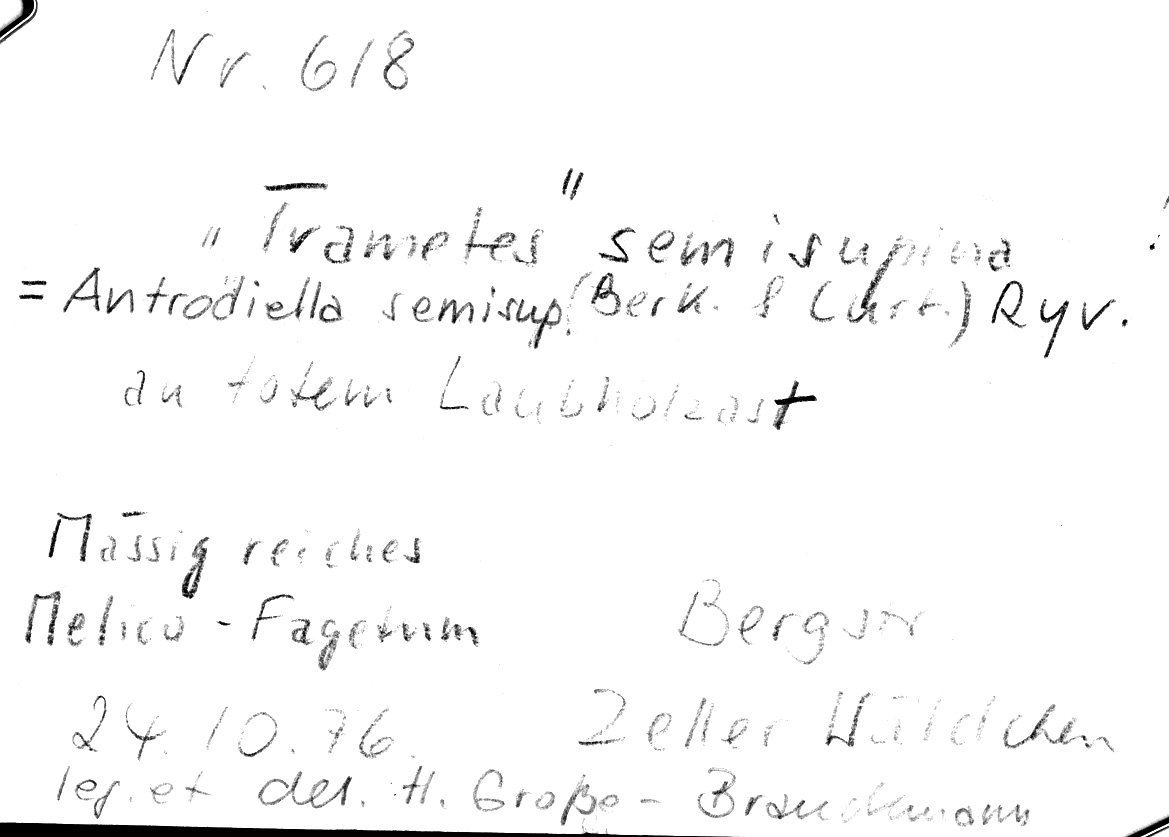 Nr. 618
„Trametes" semisupina
= Antrodiella semisup. (Berk. & Curt.) Ryv.
an totem Laubholzast
Mässig reiches
Melico-Fagetum
Bergsor
24.10.76.
Zeller Wäldchen
leg. et det. H. Große-Brauckmann